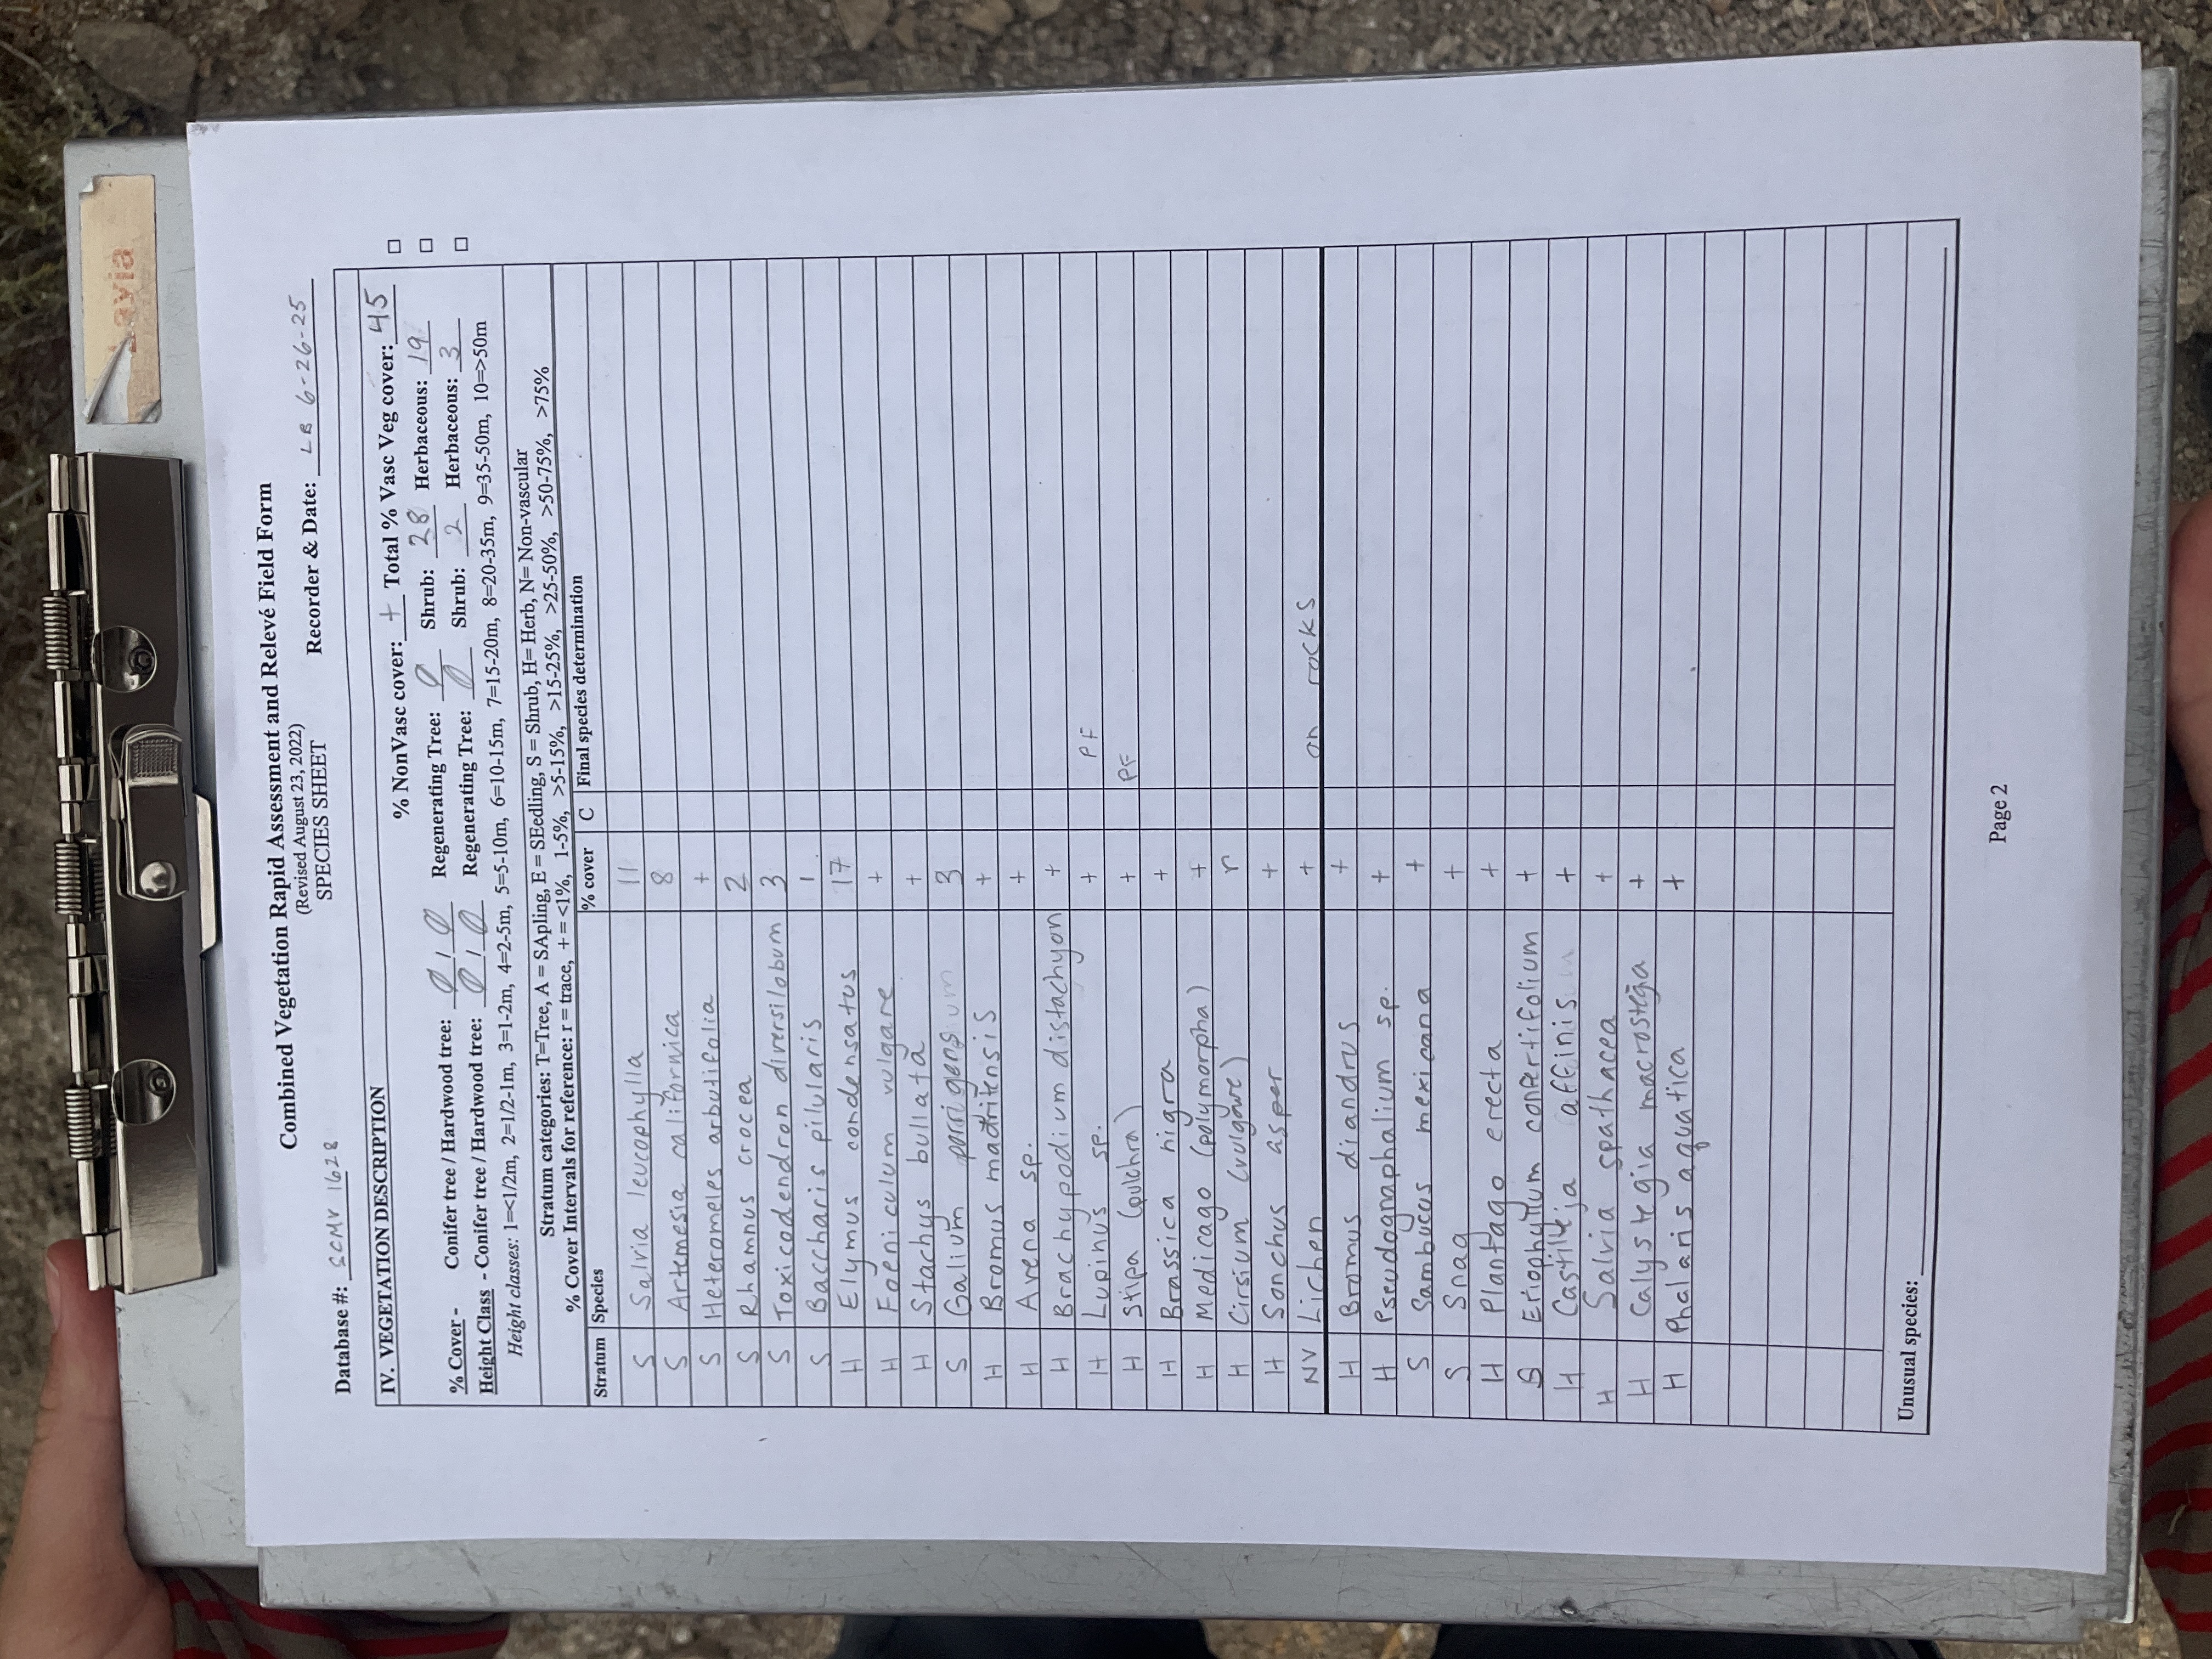 Layia
Combined Vegetation Rapid Assessment and Relevé Field Form
(Revised August 23, 2022)
SPECIES SHEET
Database #: SCMV 1628 Recorder & Date: LB 6-26-25
IV. VEGETATION DESCRIPTION
% NonVasc cover: + Total % Vasc Veg cover: 45 □
% Cover - Conifer tree / Hardwood tree: 0 / 0 Regenerating Tree: 0 Shrub: 28 Herbaceous: 19 □
Height Class - Conifer tree / Hardwood tree: 0 / 0 Regenerating Tree: 0 Shrub: 2 Herbaceous: 3 □
Height classes: 1=<1/2m, 2=1/2-1m, 3=1-2m, 4=2-5m, 5=5-10m, 6=10-15m, 7=15-20m, 8=20-35m, 9=35-50m, 10=>50m
Stratum categories: T=Tree, A = SApling, E = SEedling, S = Shrub, H= Herb, N= Non-vascular
% Cover Intervals for reference: r = trace, + = <1%, 1-5%, >5-15%, >15-25%, >25-50%, >50-75%, >75%
Stratum Species % cover C Final species determination
S Salvia leucophylla 11
S Artemesia californica 8
S Heteromeles arbutifolia +
S Rhamnus crocea 2
S Toxicodendron diversilobum 3
S Baccharis pilularis 1
H Elymus condensatus 17
H Foeniculum vulgare +
H Stachys bullata +
S Galium porrigens 3
H Bromus madritensis +
H Avena sp. +
H Brachypodium distachyon +
H Lupinus sp. + PF
H Stipa (pulchra) + PF
H Brassica nigra +
H Medicago (polymorpha) +
H Cirsium (vulgare) r
H Sonchus asper +
NV Lichen + on rocks
H Bromus diandrus +
H Pseudognaphalium sp. +
S Sambucus mexicana +
S Snag +
H Plantago erecta +
S Eriophyllum confertifolium +
H Castilleja affinis +
H Salvia spathacea +
H Calystegia macrostegia +
H Phalaris aquatica +
Unusual species:
Page 2